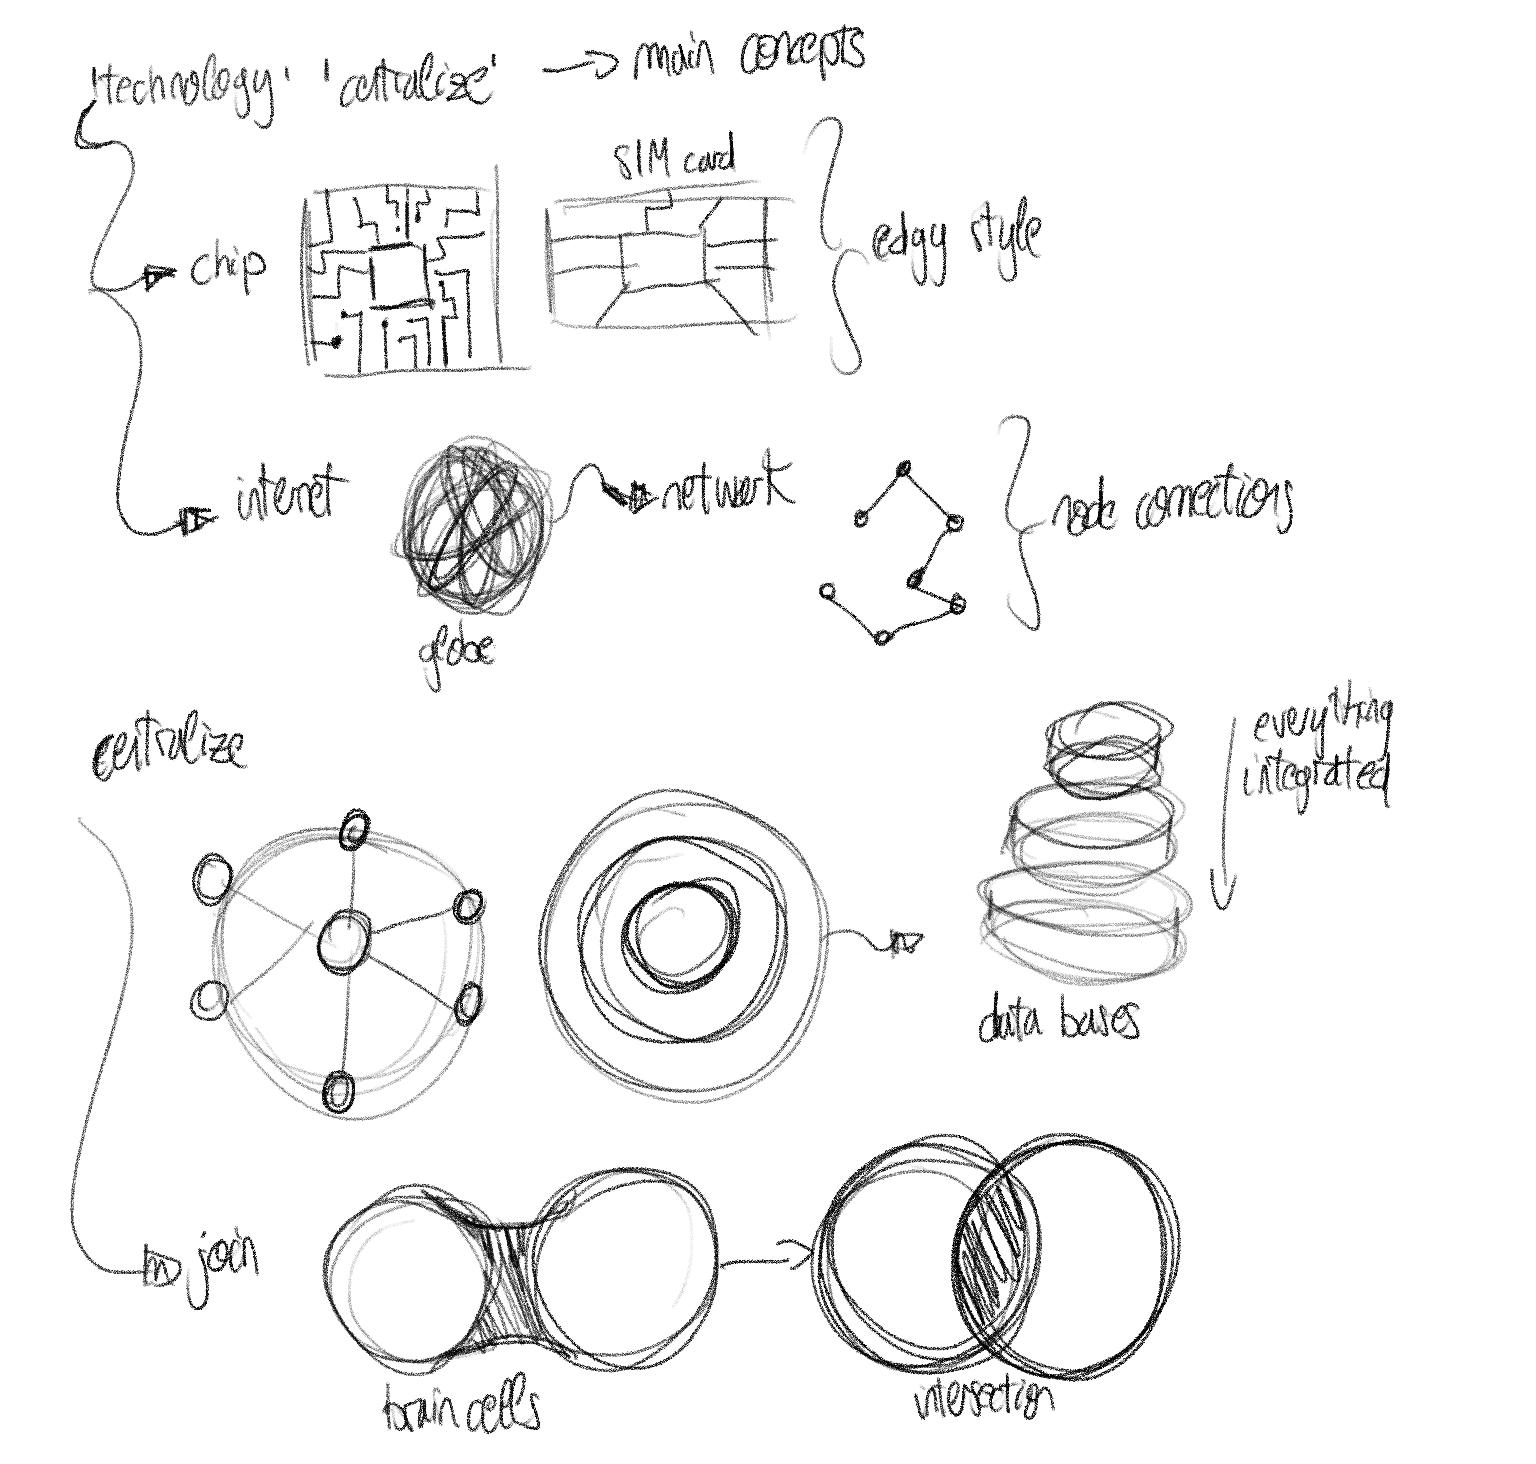 'technology' 'centralize' → main concepts
SIM card
chip
edgy style
internet
network
node connections
globe
centralize
everything
integrated
data bases
join
brain cells
intersection